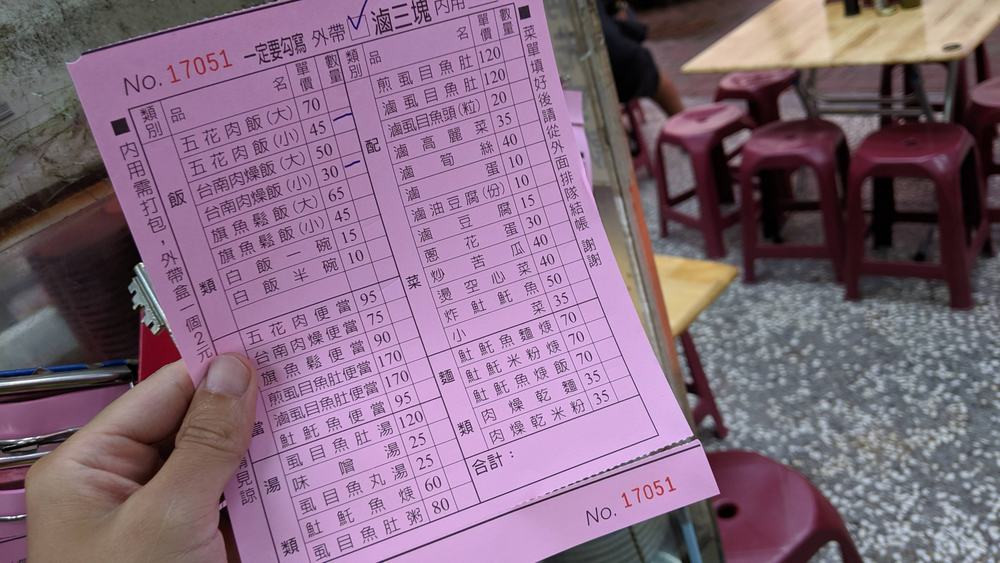 No. 17051 一定要勾寫 外帶 ✓ 滷三塊 內用
■內用需打包，外帶盒一個2元
見諒
類別 品名 單價 數量
飯類
五花肉飯(大) 70
五花肉飯(小) 45 一
台南肉燥飯(大) 50
台南肉燥飯(小) 30 一
旗魚鬆飯(大) 65
旗魚鬆飯(小) 45
白飯一碗 15
白飯半碗 10
當
五花肉便當 95
台南肉燥便當 75
旗魚鬆便當 90
煎虱目魚肚便當 170
滷虱目魚肚便當 170
𩵚魠魚便當 95
湯類
虱目魚肚湯 120
味噌湯 25
虱目魚丸湯 25
𩵚魠魚焿 60
虱目魚肚粥 80
類別 品名 單價 數量
配菜
煎虱目魚肚 120
滷虱目魚肚 120
滷虱目魚頭(粒) 20
滷高麗菜 35
滷筍絲 40
滷蛋 10
滷油豆腐(份) 10
滷豆腐 15
蔥花蛋 30
炒苦瓜 40
燙空心菜 40
炸𩵚魠魚 50
小菜 35
麵類
𩵚魠魚麵焿 70
𩵚魠米粉焿 70
𩵚魠魚焿飯 70
肉燥乾麵 35
肉燥乾米粉 35
合計：
■菜單填好後請從外面排隊結帳 謝謝
No. 17051